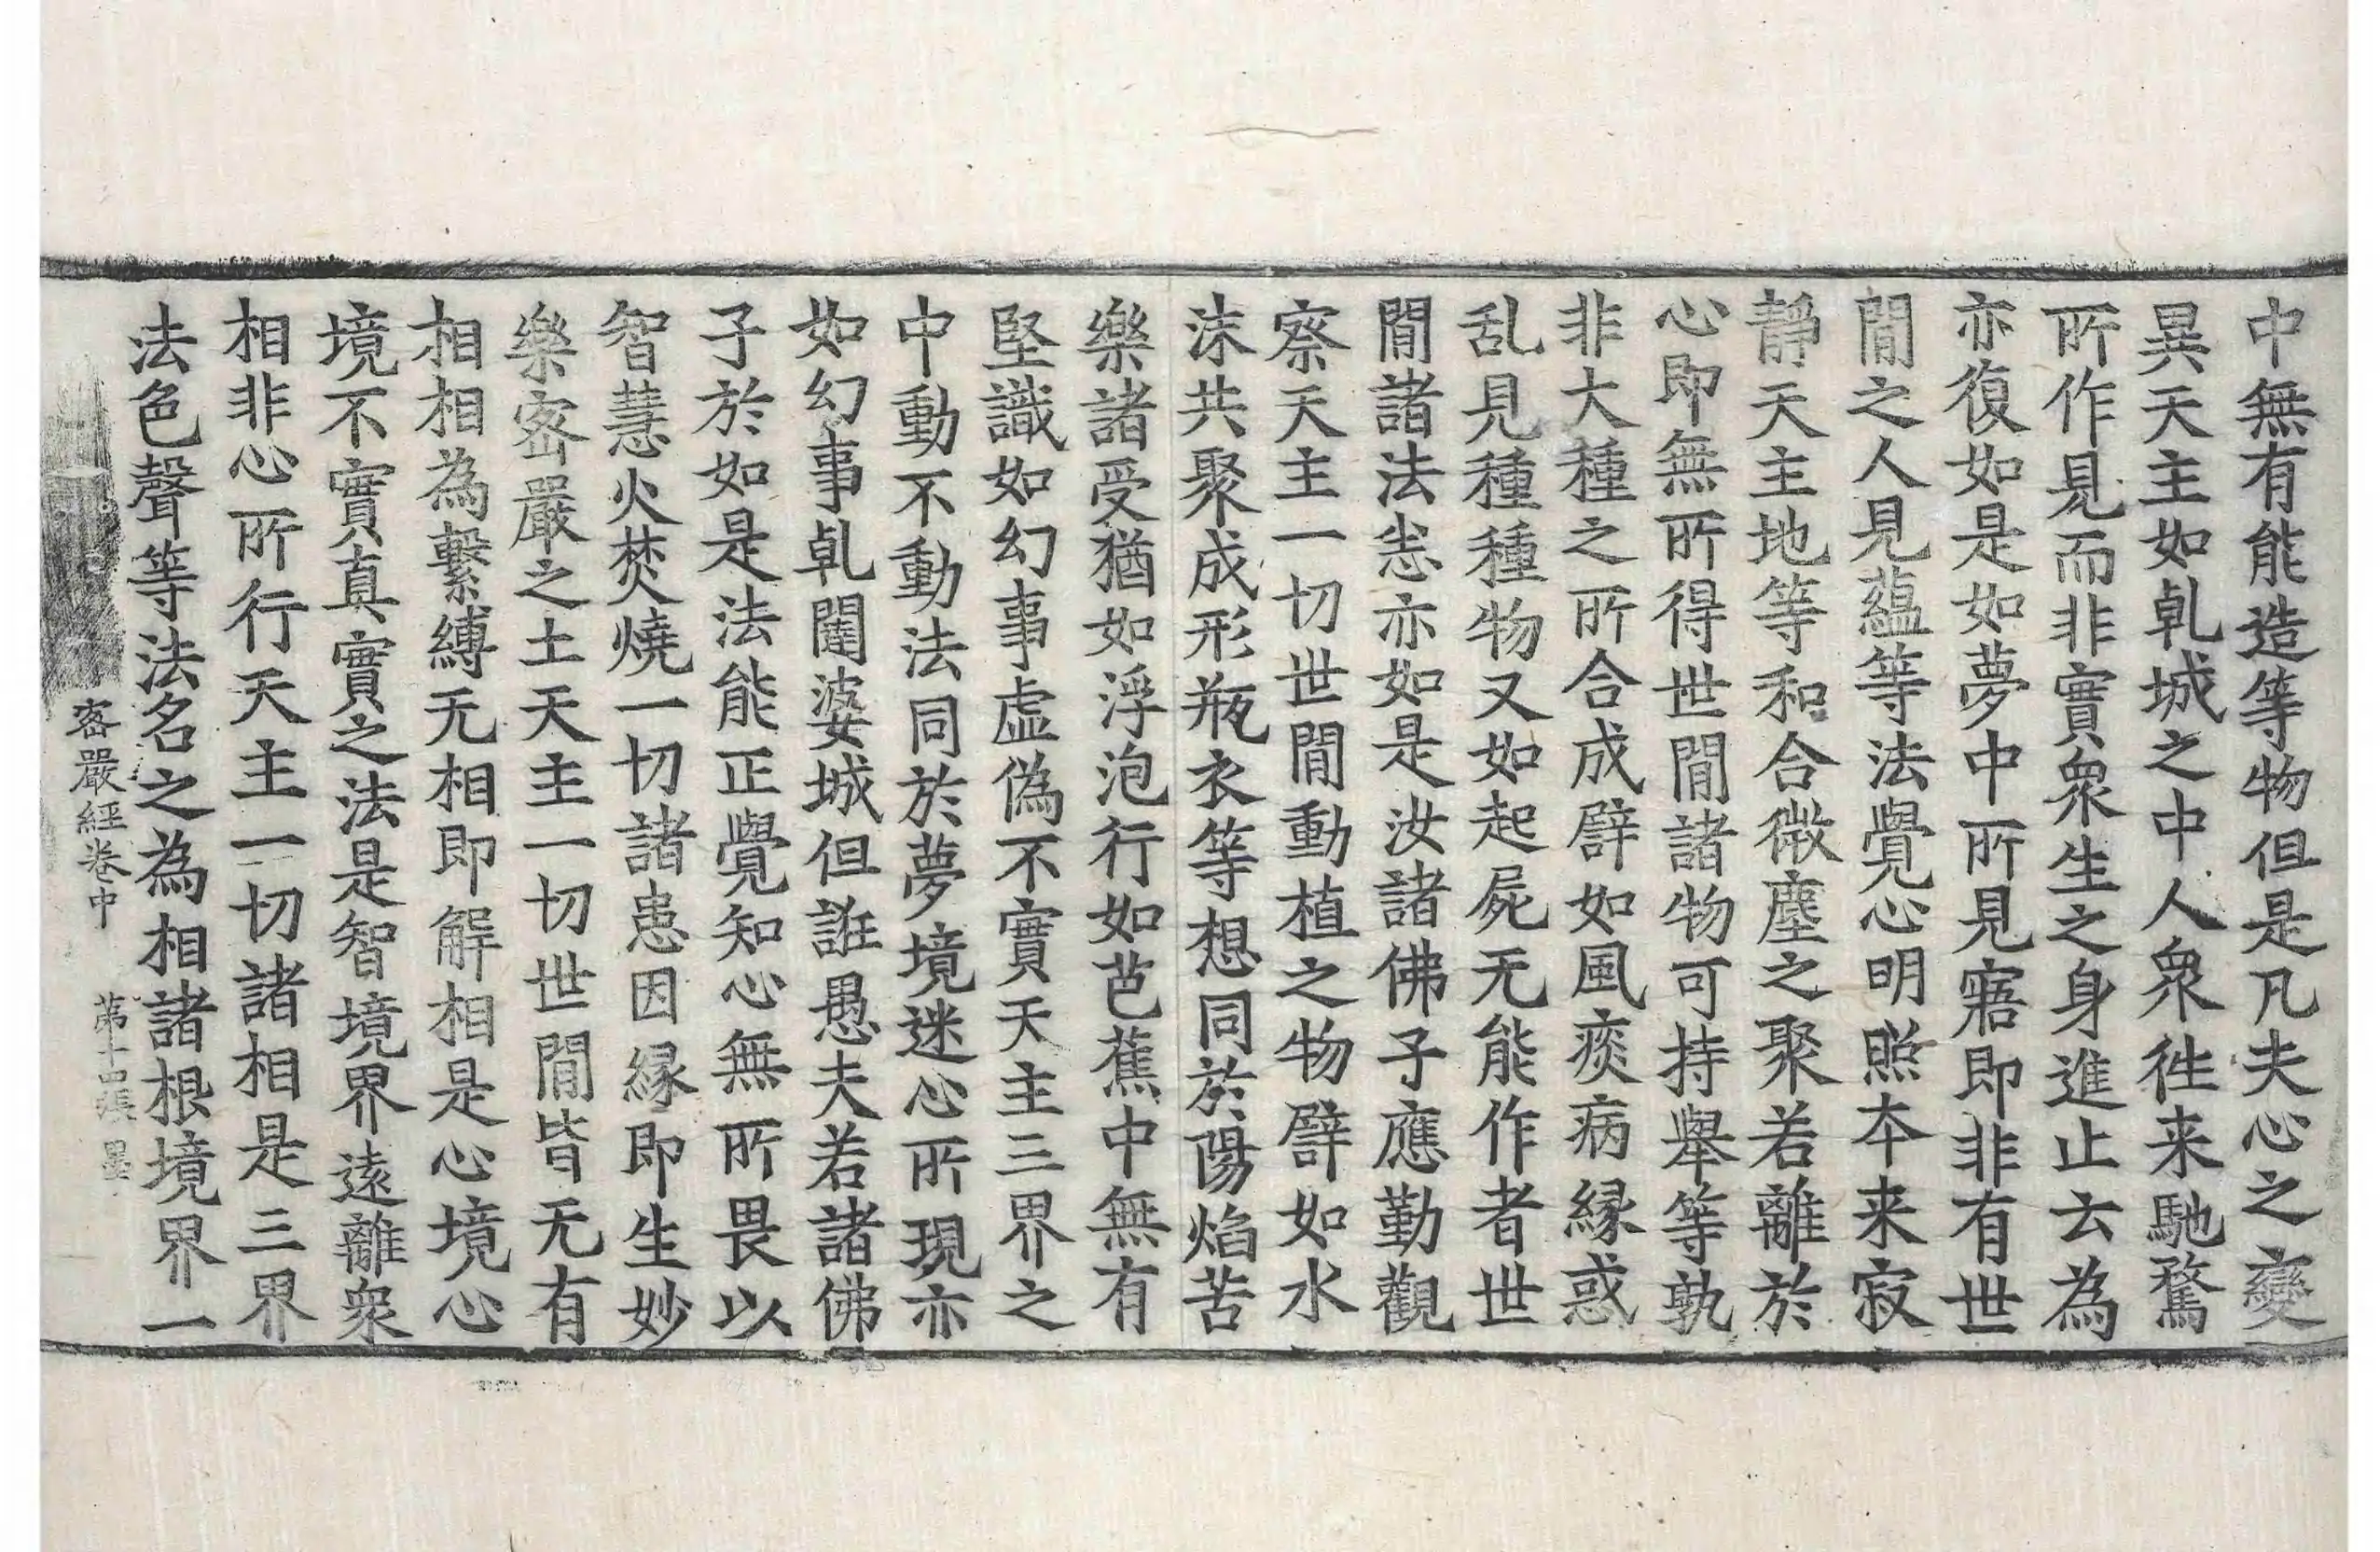 中無有能造等物但是凡夫心之變
異天主如乹城之中人衆徃来馳騖
所作見而非實衆生之身進止去為
亦復如是如夢中所見寤即非有世
間之人見蘊等法覺心明照本来寂
靜天主地等和合微塵之聚若離於
心即無所得世間諸物可持舉等孰
非大種之所合成譬如風痰病緣惑
乱見種種物又如起屍无能作者世
間諸法悉亦如是汝諸佛子應勤觀
察天主一切世間動植之物譬如水
沫共聚成形瓶衣等想同於陽焰苦
樂諸受猶如浮泡行如芭蕉中無有
堅識如幻事虛偽不實天主三界之
中動不動法同於夢境迷心所現亦
如幻事乹闥婆城但誑愚夫若諸佛
子於如是法能正覺知心無所畏以
智慧火焚燒一切諸患因緣即生妙
樂密嚴之土天主一切世間皆无有
相相為繫縛无相即解相是心境心
境不實真實之法是智境界遠離衆
相非心所行天主一切諸相是三界
法色聲等法名之為相諸根境界一
密嚴經卷中 第十四張